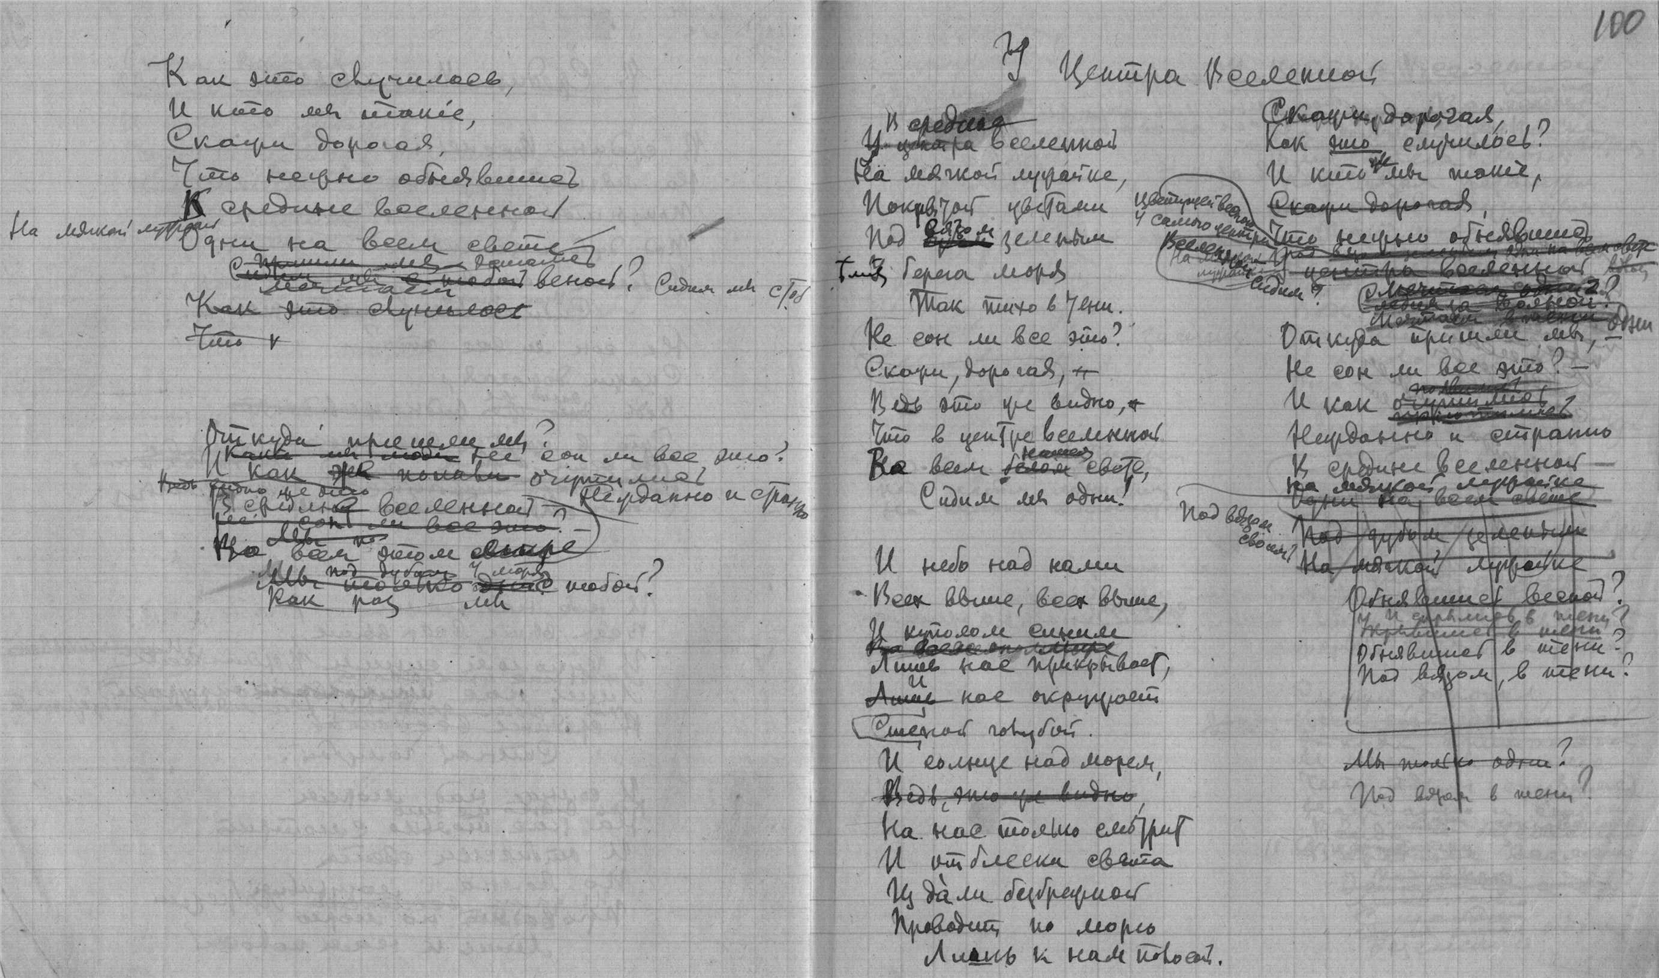 Как это случилось,
И кто мы такие,
Скажи дорогая,
Что нежно обнявшись
К средине вселенной
На мягкой
Одни на всем свете
Сидим мы с тобой весной?
Сидим мы с тоб
Как это случилось
Что
Откуда пришли мы?
Не сон ли все это?
И как очутились
Нежданно и странно
В средине вселенной
Не сон ли все это?
Во всем этом
под дубом у моря
Мы только тобой?
Как раз мы
100
У Центра Вселенной
В средине
У центра вселенной
На мягкой лужайке,
Покрытой цветами
Под вязом зеленым
У берега моря
Так тихо в тени.
Не сон ли все это?
Скажи, дорогая,
Ведь это уж видно,
Что в центре вселенной
На всем белом свете,
Сидим мы одни!
И небо над нами
Всех выше, всех выше,
И куполом синим
Лишь нас прикрывает,
И
Лишь нас окружает
Стеной голубой.
И солнце над морем,
Ведь, это уж видно,
На нас только смотрит
И отблески света
Из дали безбрежной
Проводит по морю
Лишь к нам полосой.
Скажи, дорогая,
Как это случилось?
И кто мы такие,
Скажи дорогая,
Что нежно обнявшись
центра вселенной
У самого центра
Вселенной
На мягкой
Сидим?
Откуда пришли мы, одни
Не сон ли все это?
И как очутились
Нежданно и странно
В средине вселенной
На мягкой лужайке
Одни на всем свете
Под вязом
своим?
Под дубом зеленым
На мягкой лужайке
Обнявшись весной?
в тени?
Обнявшись в тени?
Под вязом, в тени?
Мы только одни?
Под вязом в тени?